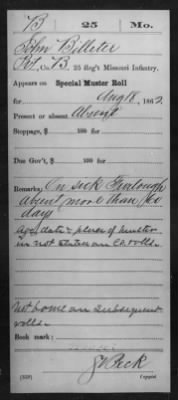 B 25 Mo.
John Billeter
Pvt, Co. B, 25 Reg't Missouri Infantry.
Appears on Special Muster Roll
for Aug 18, 1862.
Present or absent Absent
Stoppage, $ 100 for
Due Gov't, $ 100 for
Remarks: On sick Furlough
absent more than 60
days
Age, date & place of muster
in not stated on Co. rolls.
Not borne on subsequent
rolls.
Book mark:
J Beck
(359) Copyist.